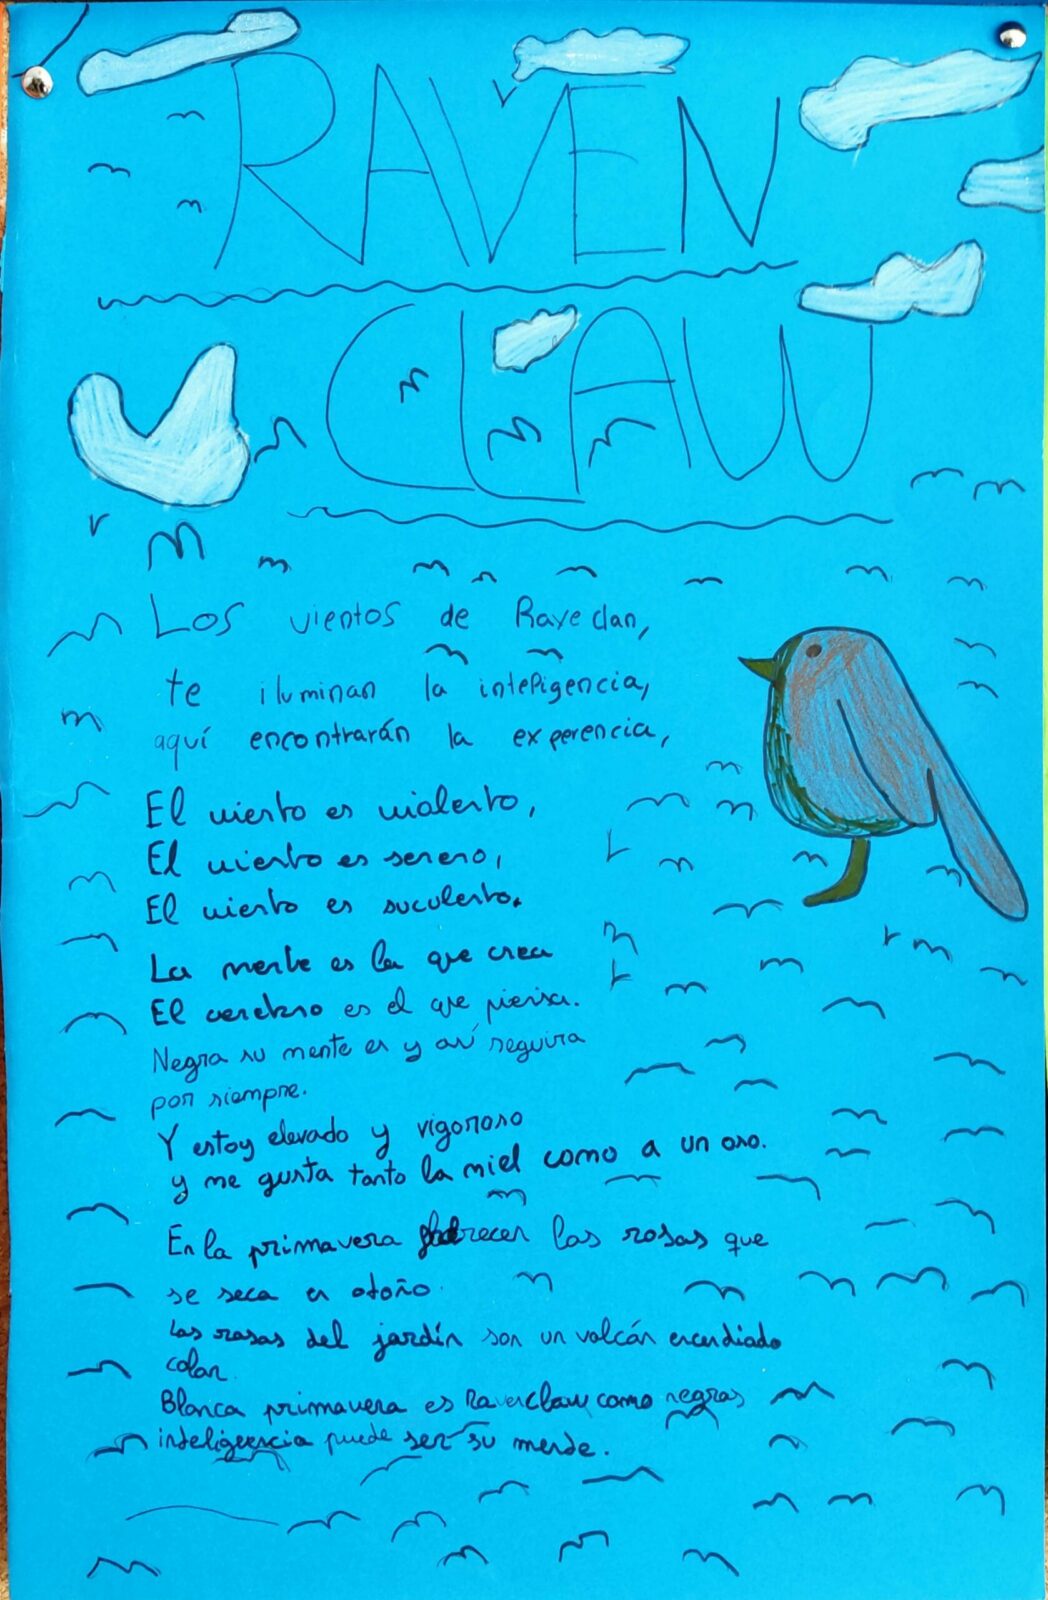 RAVEN
CLAW
Los vientos de Raveclan,
te iluminan la inteligencia,
aquí encontrarán la experencia,
El viento es violento,
El viento es sereno,
El viento es suculento.
La mente es la que crea
El cerebro es el que piensa.
Negra su mente es y así seguira
por siempre.
Y estoy elevado y vigoroso
y me gusta tanto la miel como a un oso.
En la primavera las rosas que
se seca en otoño.
Las rosas del jardín son un volcán encendiado
color.
Blanca primavera es Ravenclaw como negras
inteligencia puede ser su mente.